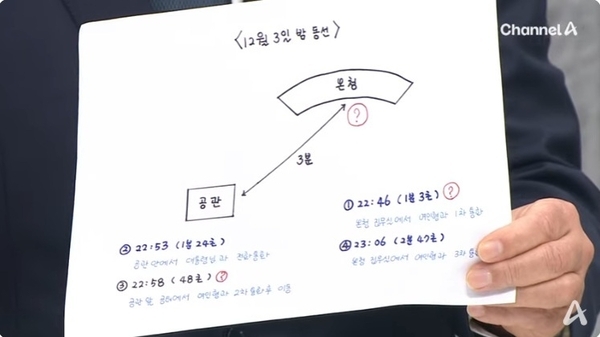 Channel A
<12월 3일 밤 동선>
본청
?
3분
공관
① 22:46 (1분 3초) ?
본청 집무실에서 여인형과 1차 통화
② 22:53 (1분 24초)
공관 안에서 대통령님과 전화통화
④ 23:06 (2분 47초)
본청 집무실에서 여인형과 3차 통화
③ 22:58 (48초) ?
공관 앞 공터에서 여인형과 2차 통화 후 이동
A